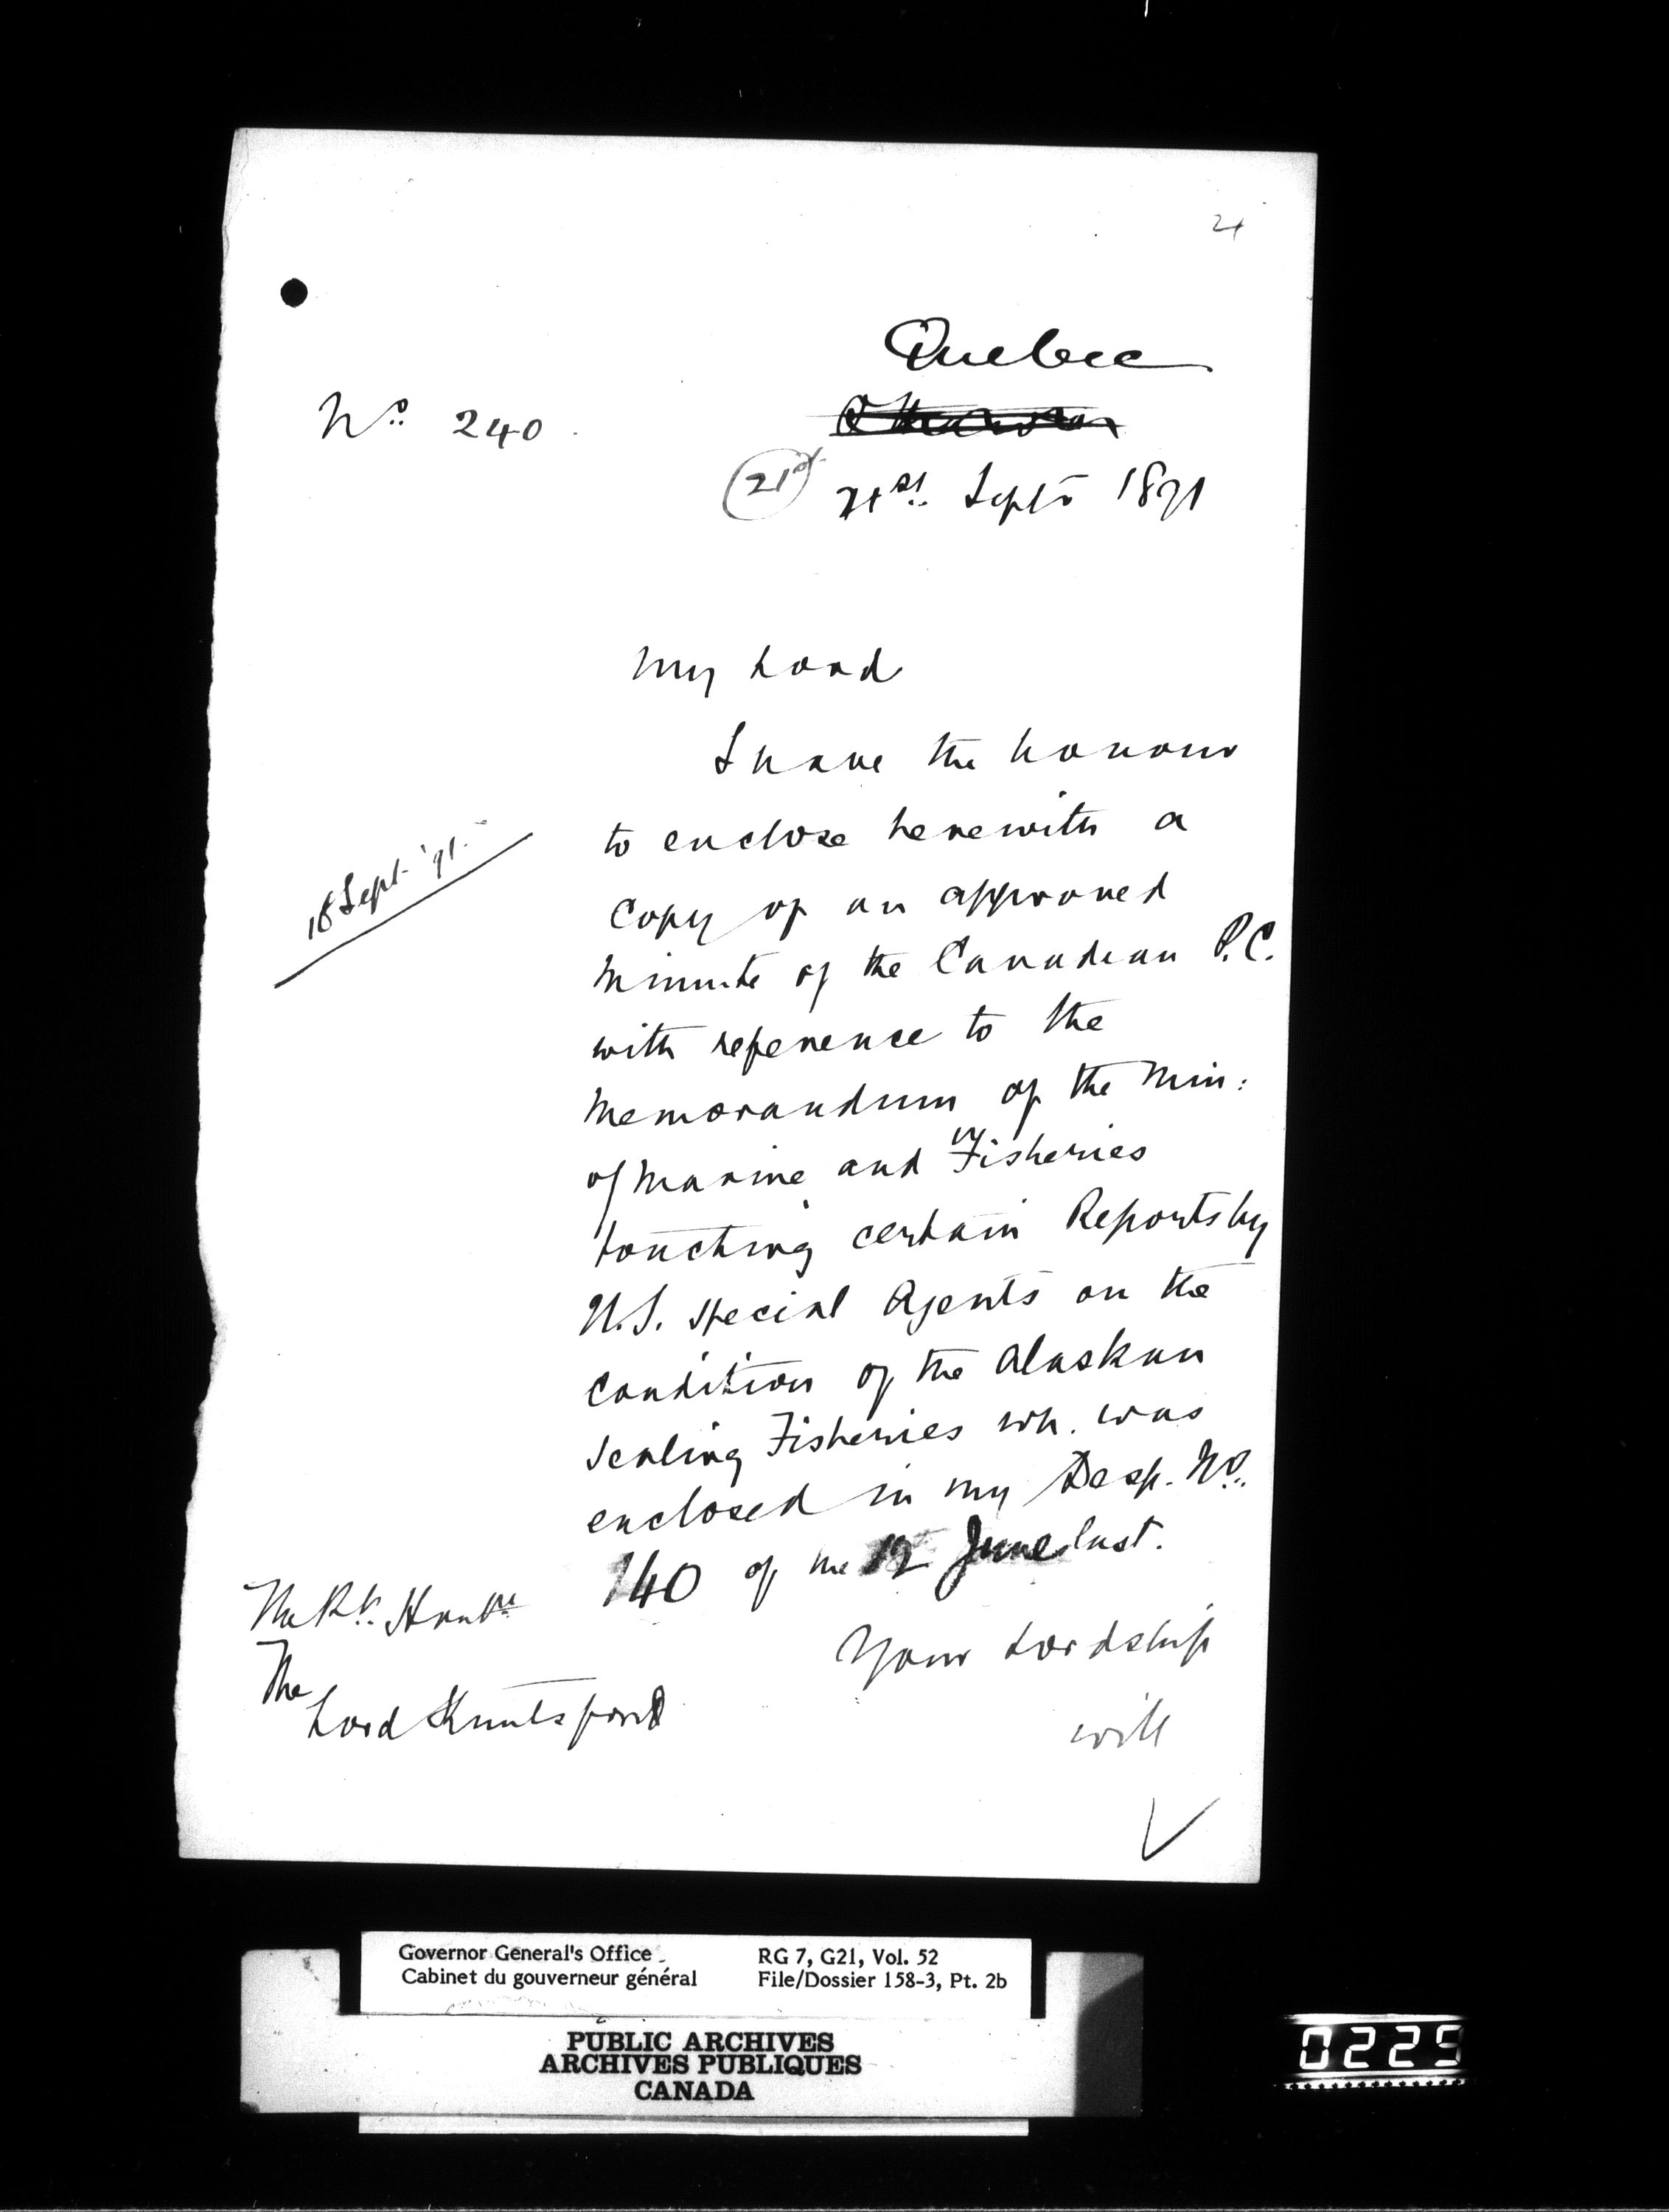 21
Quebec
No. 240
Ottawa
21st 21st. Septr 1891
My Lord
I have the honour
to enclose herewith a
18 Sept. '91.
Copy of an approved
Minute of the Canadian P.C.
with reference to the
Memorandum of the Min:
of Marine and Fisheries
touching certain Reports by
U.S. Special Agents on the
condition of the Alaskan
Sealing Fisheries wh. was
enclosed in my Desp. No.
140 of the 12 June last.
The Rt. Honble
The
Lord Knutsford
Your Lordship
will
Governor General's Office
Cabinet du gouverneur général
RG 7, G21, Vol. 52
File/Dossier 158-3, Pt. 2b
PUBLIC ARCHIVES
ARCHIVES PUBLIQUES
CANADA
0225